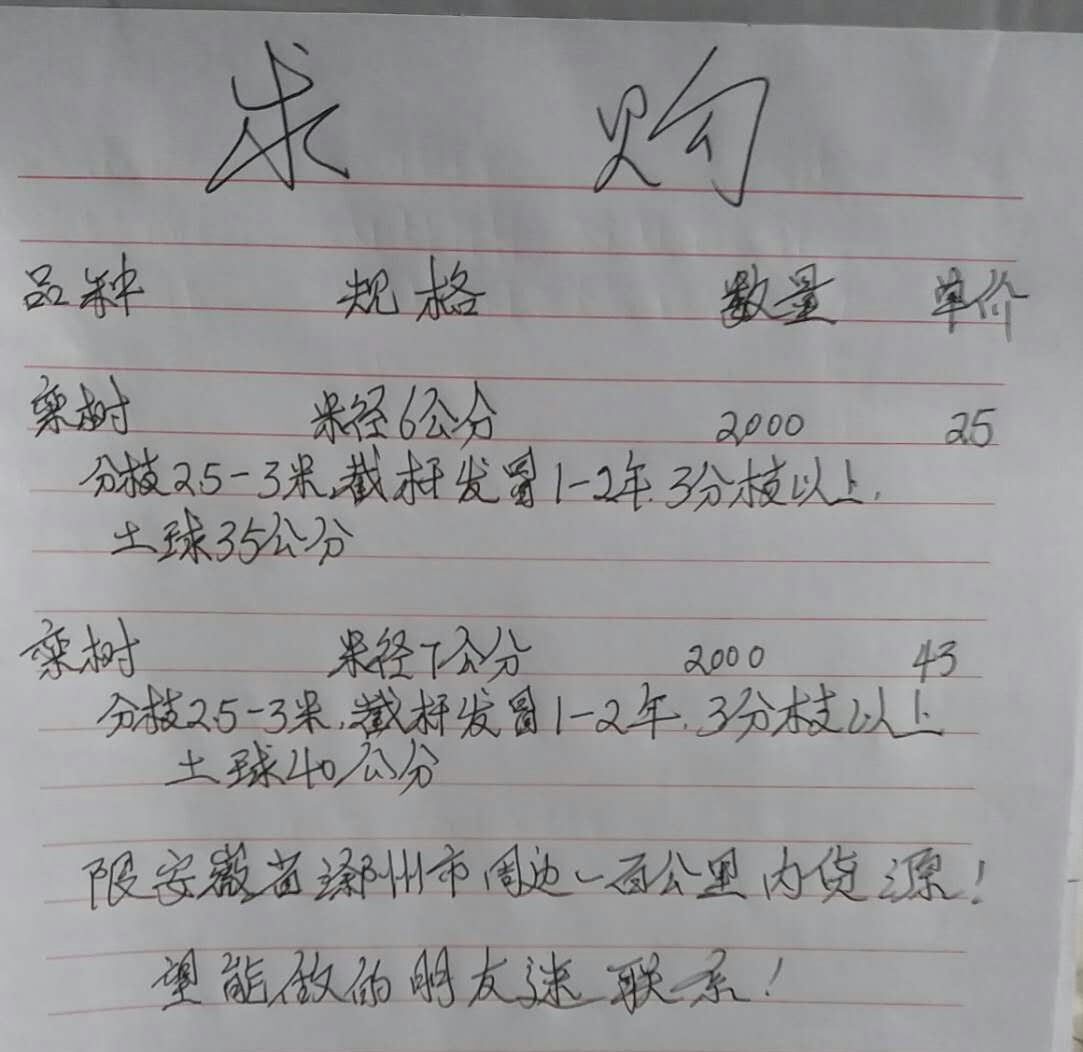 求 购
品种 规格 数量 单价
栾树 米径6公分 2000 25
分枝2.5-3米,截杆发冒1-2年.3分枝以上.
土球35公分
栾树 米径7公分 2000 43
分枝2.5-3米,截杆发冒1-2年.3分枝以上
土球40公分
限安徽省滁州市周边一百公里内货源!
望能做的朋友速联系!